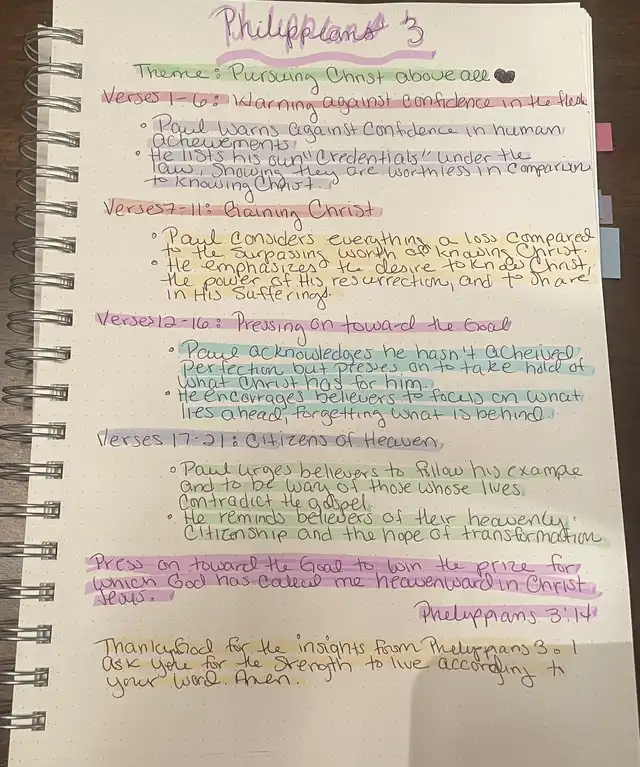 Philippians 3
Theme: Pursuing Christ above all
Verses 1-6: Warning against confidence in the flesh
• Paul warns against confidence in human
acheivements.
• He lists his own "Credentials" under the
law, showing they are worthless in comparion
to knowing Christ.
Verses 7-11: Gaining Christ
• Paul considers everything a loss compared
to the surpassing worth of knowing Christ.
• He emphasizes the desire to know Christ,
the power of His resurrection, and to share
in His Sufferings.
Verses 12-16: Pressing on toward the Goal
• Paul acknowledges he hasn't acheived
perfection but presses on to take hold of
what Christ has for him.
• He encourages believers to focus on what
lies ahead, forgetting what is behind.
Verses 17-21: Citizens of Heaven
• Paul urges believers to follow his example
and to be wary of those whose lives
contradict the gospel.
• He reminds believers of their heavenly
Citizenship and the hope of transformation
Press on toward the Goal to win the prize for
which God has called me heavenward in Christ
Jesus.
Philippians 3:14
Thankyou God for the insights from Philippians 3. I
ask you for the strength to live according to
your word. Amen.